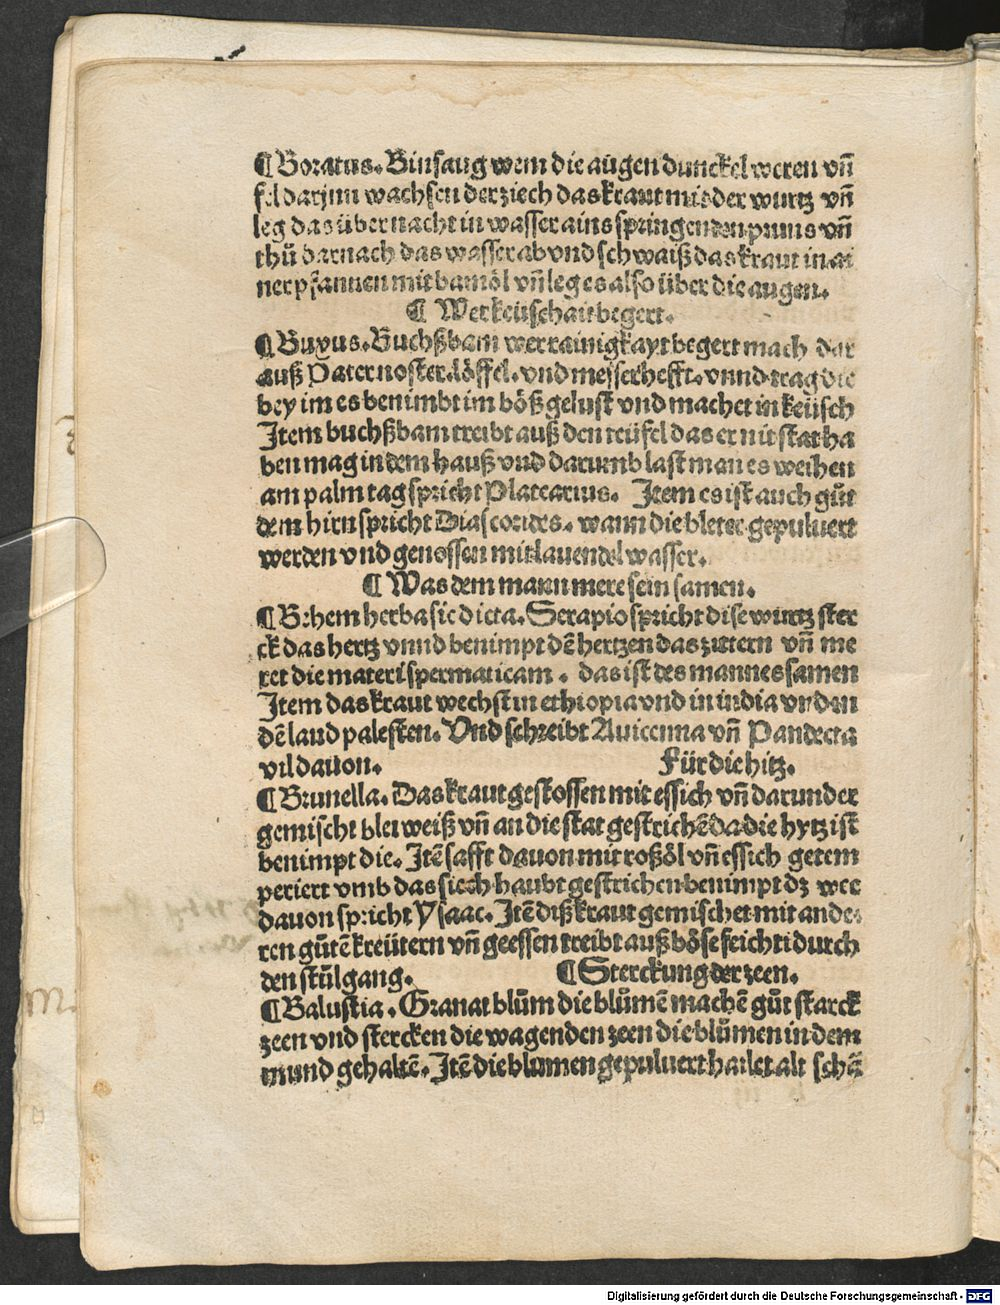 ¶ Boratus. Binsaug wem die augen dunckel weren vñ
fel darjnn wachsen der ziech das kraut mit der wurtz vñ
leg das über nacht in wasser ains springenden pruns vñ
thů darnach das wasser ab vnd schwaiß das kraut in ai
ner pfannen mit bamöl vñ leg es also über die augen.
¶ Wer keüschait begert.
¶ Buxus. Buchßbam wer rainigkayt begert mach dar
auß Pater noster. löffel. vnd messerhefft. vnnd trag die
bey im es benimbt im böß gelust vnd machet in keüsch
Item buchßbam treibt auß den teüfel das er nit stat ha
ben mag in dem hauß vnd darumb last man es weihen
am palm tag spricht Platearius. Item es ist auch gůt
dem hirn spricht Diascorides. wann die bleter gepuluert
werden vnd genossen mit lauendel wasser.
¶ Was dem mann mere sein samen.
¶ Behem herba sic dicta. Serapio spricht dise wurtz ster
ck das hertz vnnd benimpt dē hertzen das zittern vñ me
ret die materi spermaticam. das ist des mannes samen
Item das kraut wechst in ethiopia vnd in india vnd in
dē land palesten. Vnd schreibt Auicenna vñ Pandecta
vil dauon. Für die hitz.
¶ Brunella. Das kraut gestossen mit essich vñ darunder
gemischt blei weiß vñ an die stat gestrichē da die hytz ist
benimpt die. Itē safft dauon mit roßöl vñ essich getem
periert vmb das siech haubt gestrichen benimpt dz wee
dauon spricht Ysaac. Itē diß kraut gemischet mit ande
ren gůtē kreütern vñ geessen treibt auß böse feichti durch
den stůlgang. ¶ Sterckung der zeen.
¶ Balustia. Granat blům die blůmē machē gůt starck
zeen vnd stercken die wagenden zeen die blůmen in dem
mund gehaltē. Itē die blumen gepuluert hailet alt schä
Digitalisierung gefördert durch die Deutsche Forschungsgemeinschaft - DFG